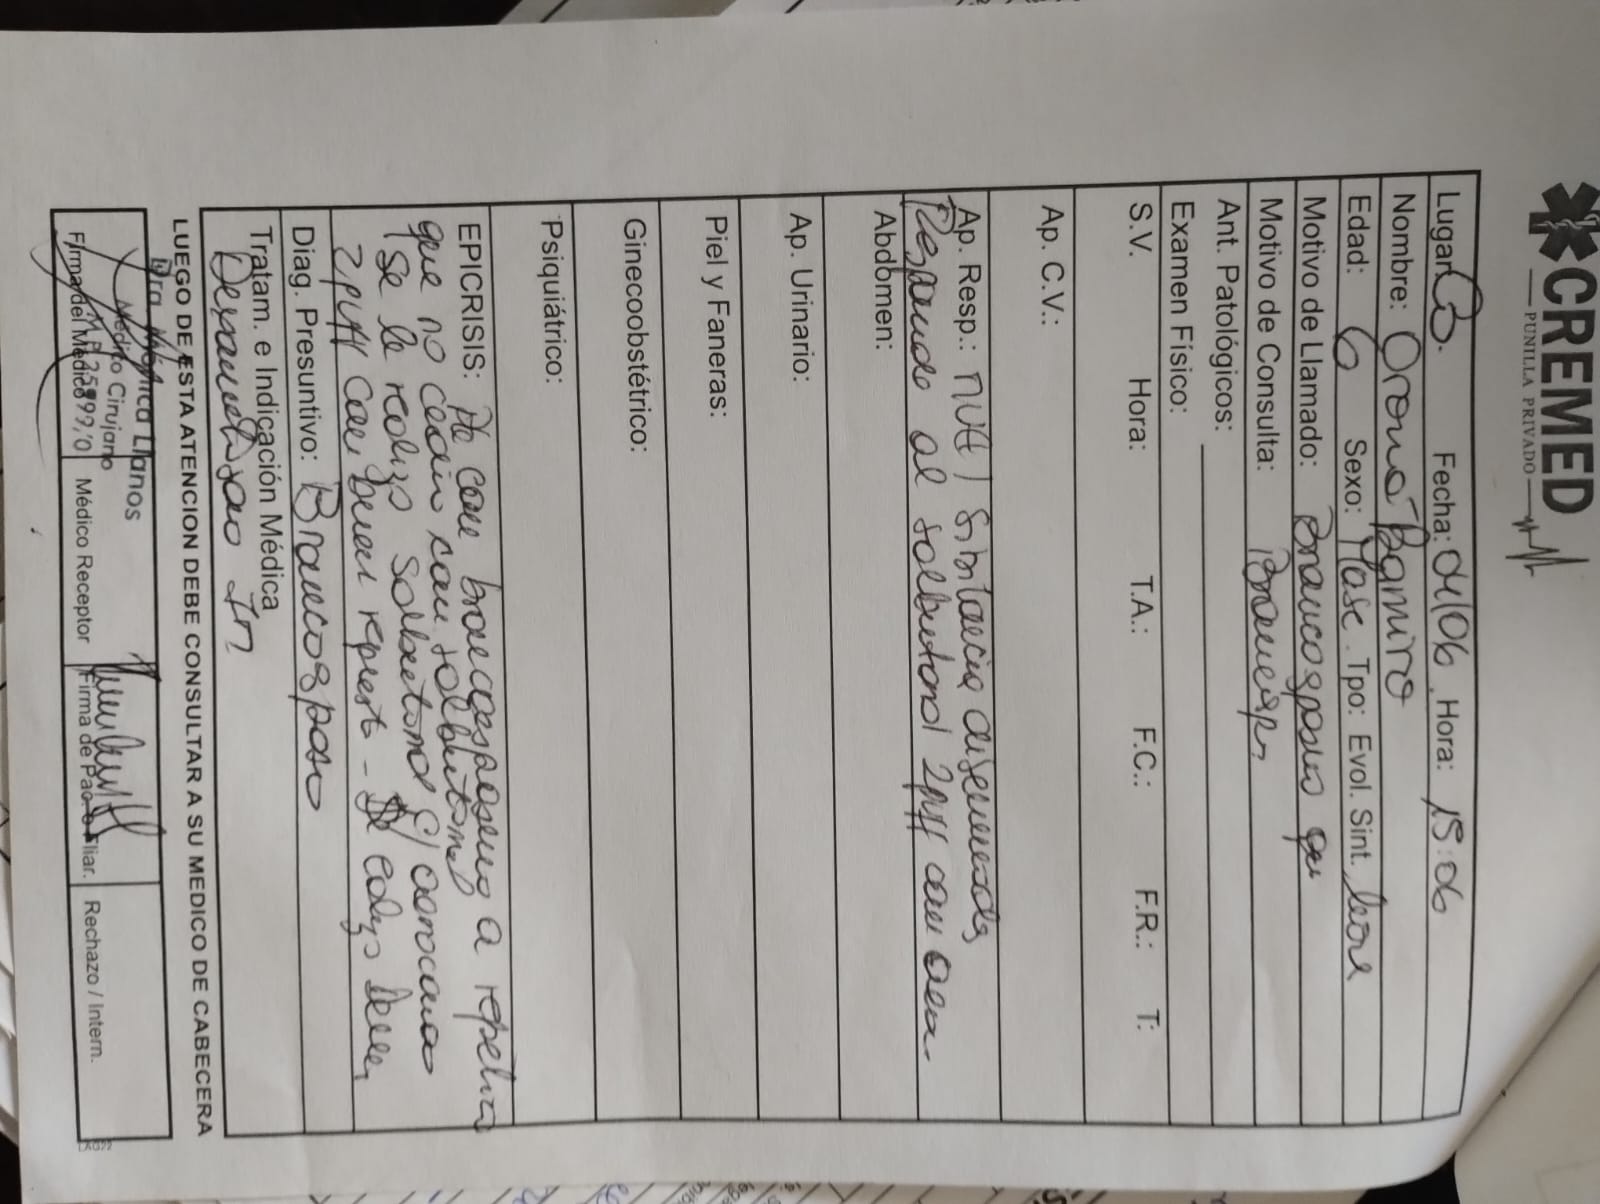 CREMED
PUNILLA PRIVADO
Lugar: Fecha: 04/06 Hora: 15:06
Nombre: Oroná Ramiro
Edad: 6 Sexo: Masc. Tpo: Evol. Sint.
Motivo de Llamado: Broncospasmo
Motivo de Consulta:
Ant. Patológicos:
Examen Físico:
S.V. Hora: T.A.: F.C.: F.R.: T:
Ap. C.V.:
Ap. Resp.: Sibilancia diseminada
Responde al salbutamol 2 puff con
Abdomen:
Ap. Urinario:
Piel y Faneras:
Ginecoobstétrico:
Psiquiátrico:
EPICRISIS: Pte con broncoespasmo a repetición
que no cedía con salbutamol
Se le realiza salbutamol c/ aerocamara
2 puff con buena
Diag. Presuntivo: Broncospasmo
Tratam. e Indicación Médica
Dexametasona Im
LUEGO DE ESTA ATENCION DEBE CONSULTAR A SU MEDICO DE CABECERA
Dra. Mónica Llanos
Médico Cirujano
Firma del Médico Médico Receptor Firma de Pac. o Fliar. Rechazo / Intern.